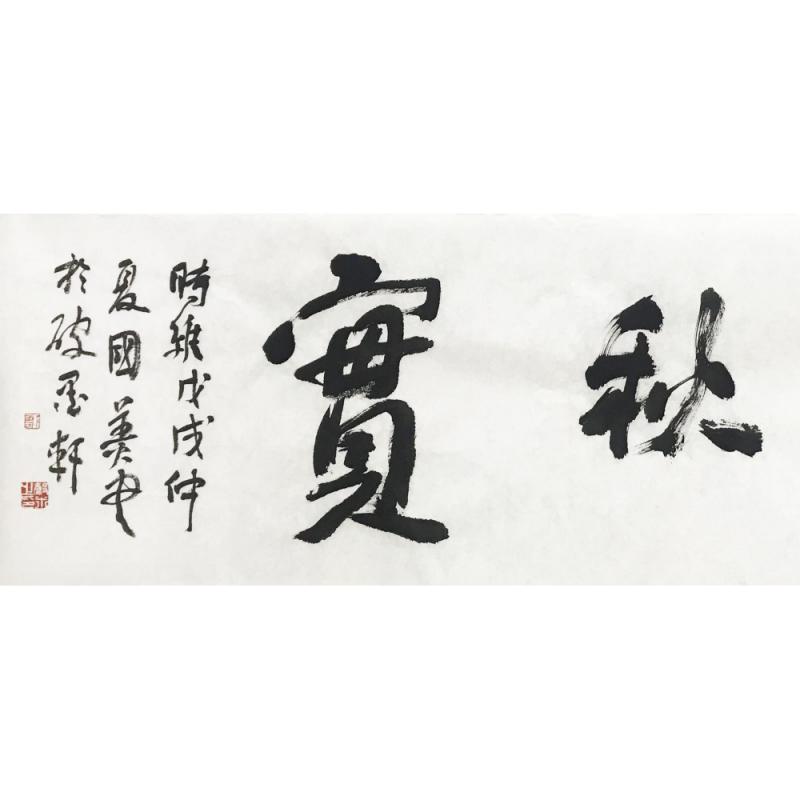 秋實
時維戊戌仲
夏國美書
於破墨軒